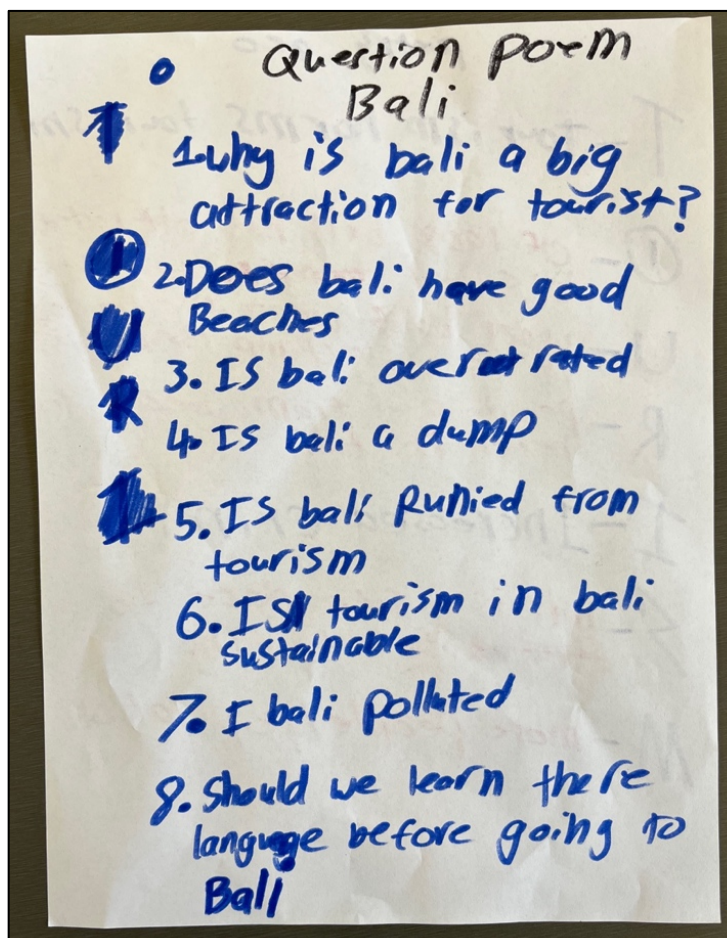 Question Poem
Bali
1. Why is bali a big
attraction for tourist?
2. Does bali have good
Beaches
3. Is bali overrated
4. Is bali a dump
5. Is bali Runied from
tourism
6. Is tourism in bali
sustainable
7. I bali polluted
8. Should we learn there
language before going to
Bali